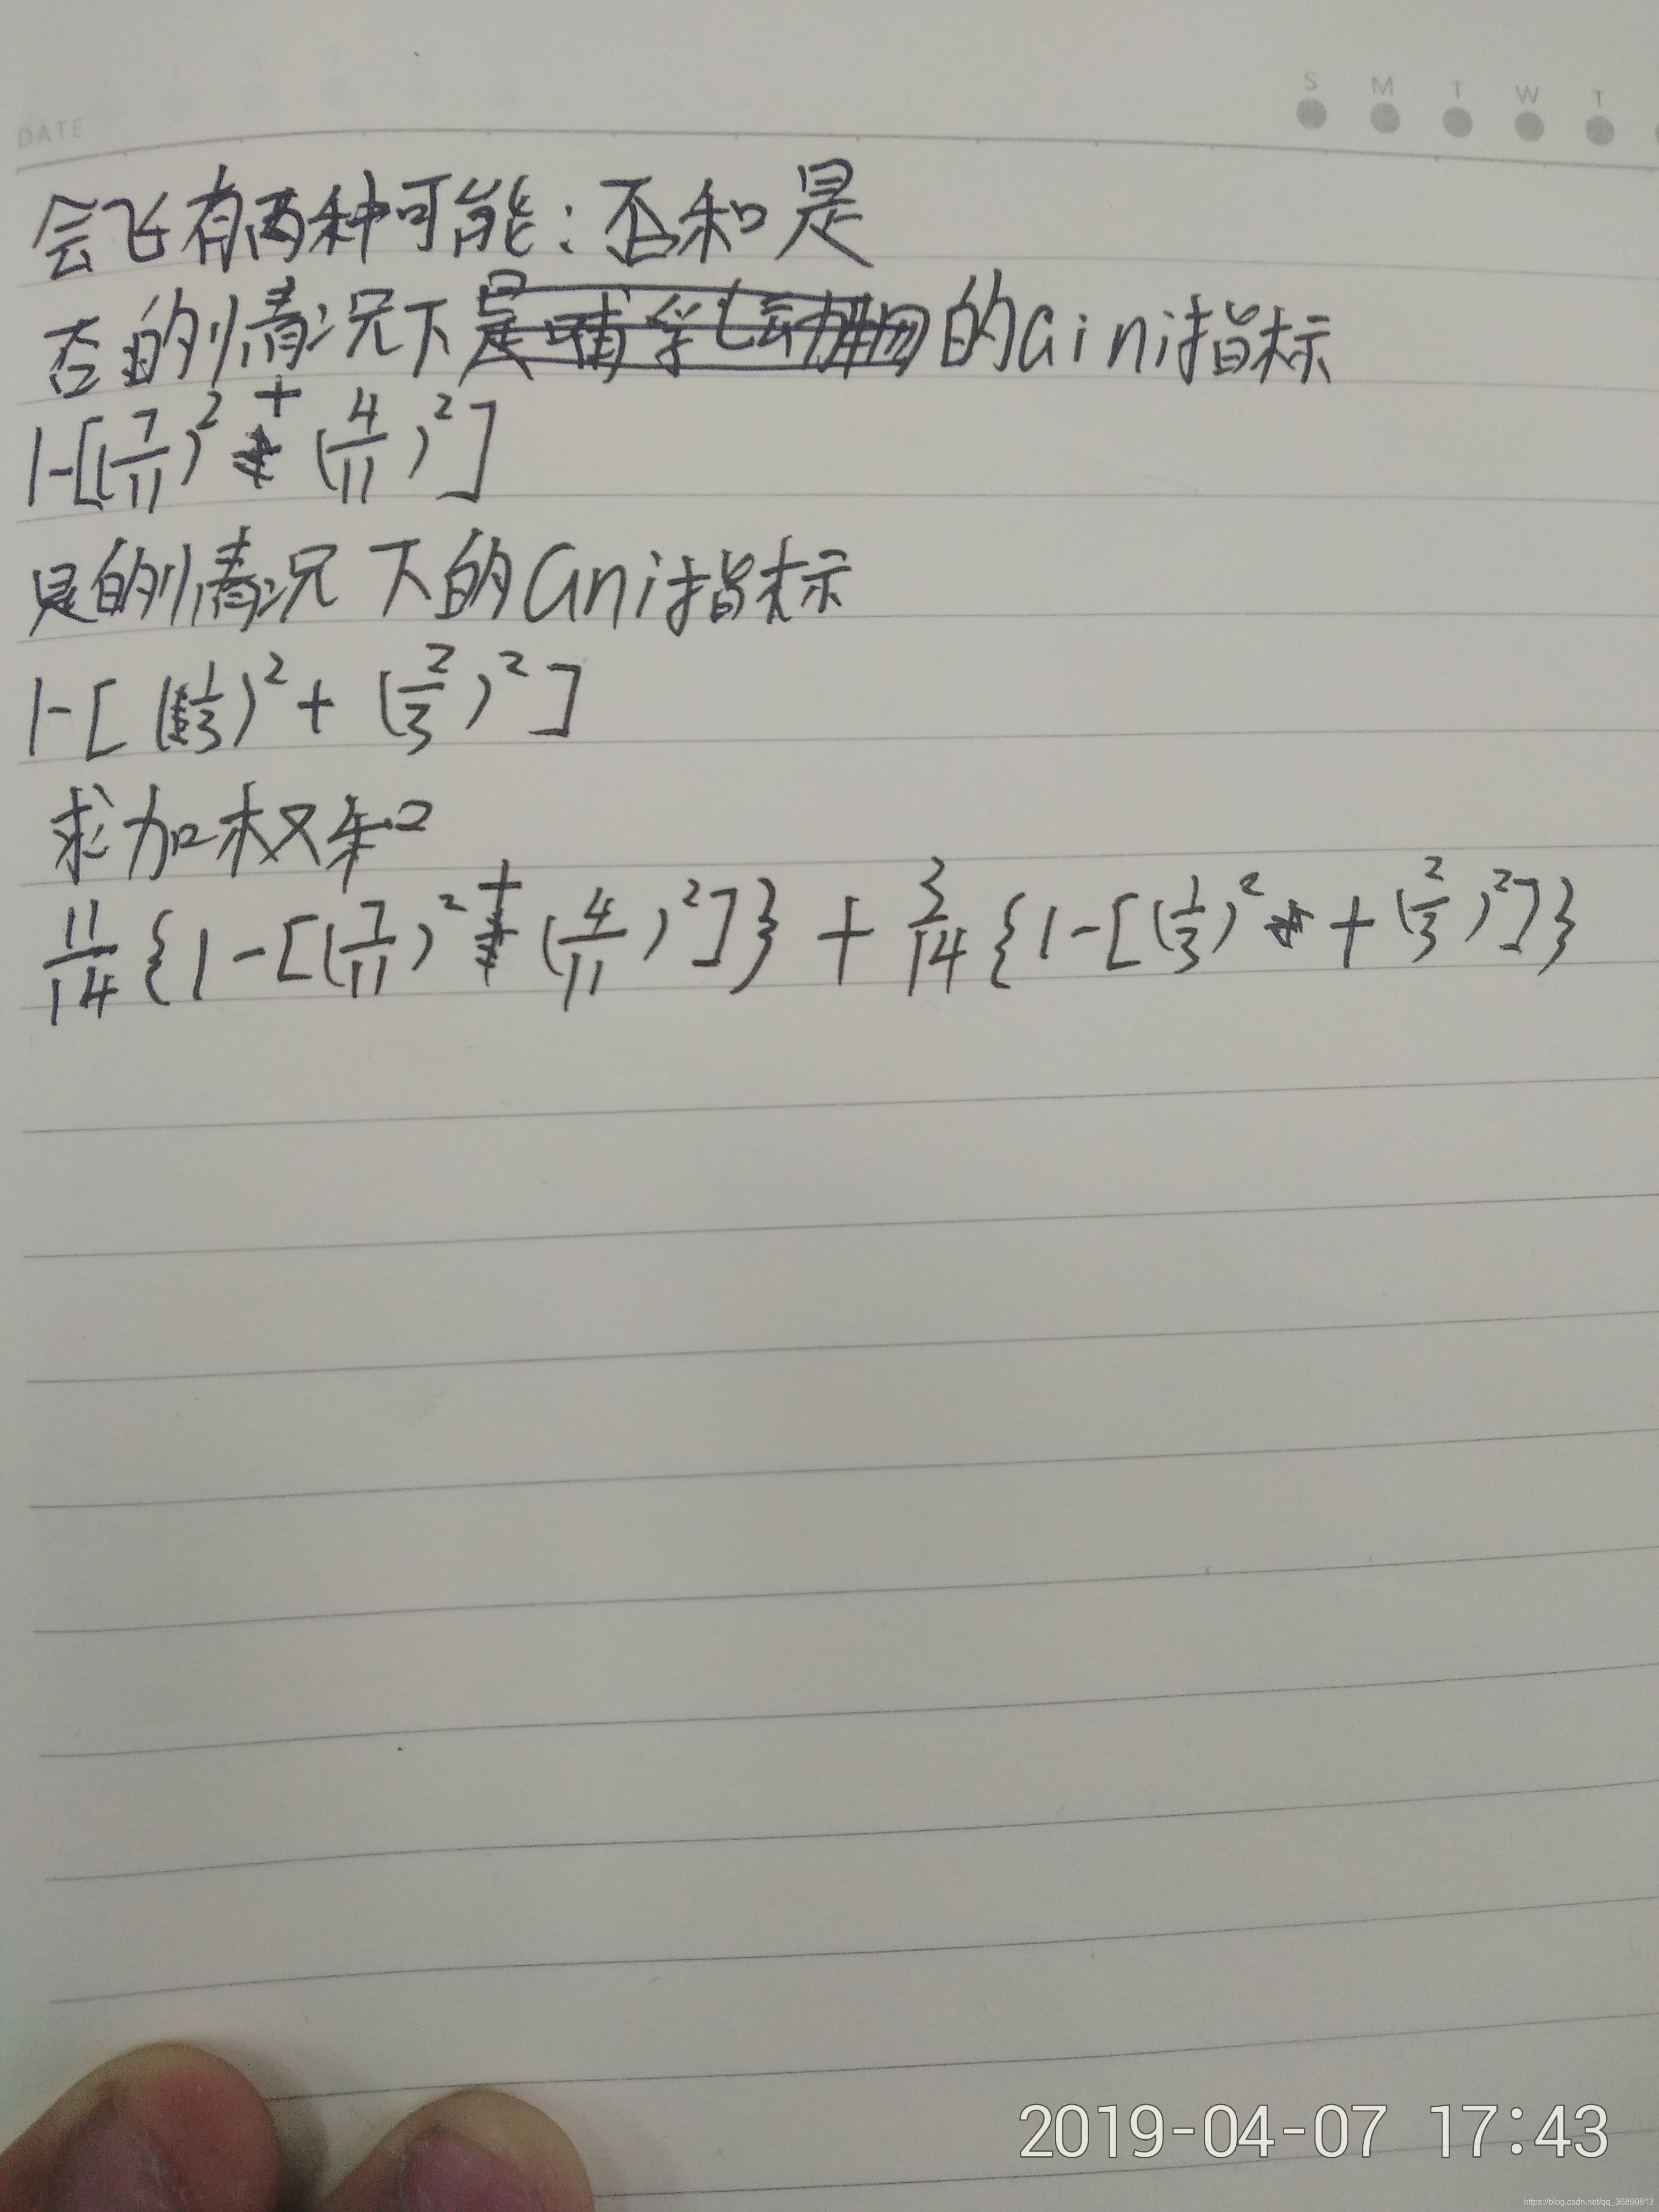 DATE
S M T W T
会飞有两种可能：否和是
否的情况下是哺乳动物的Gini指标
1-[(7/11)²+(4/11)²]
是的情况下的Gni指标
1-[(1/3)²+(2/3)²]
求加权和
11/14{1-[(7/11)²+(4/11)²]}+3/14{1-[(1/3)²+(2/3)²]}
2019-04-07 17:43
https://blog.csdn.net/qq_36890813